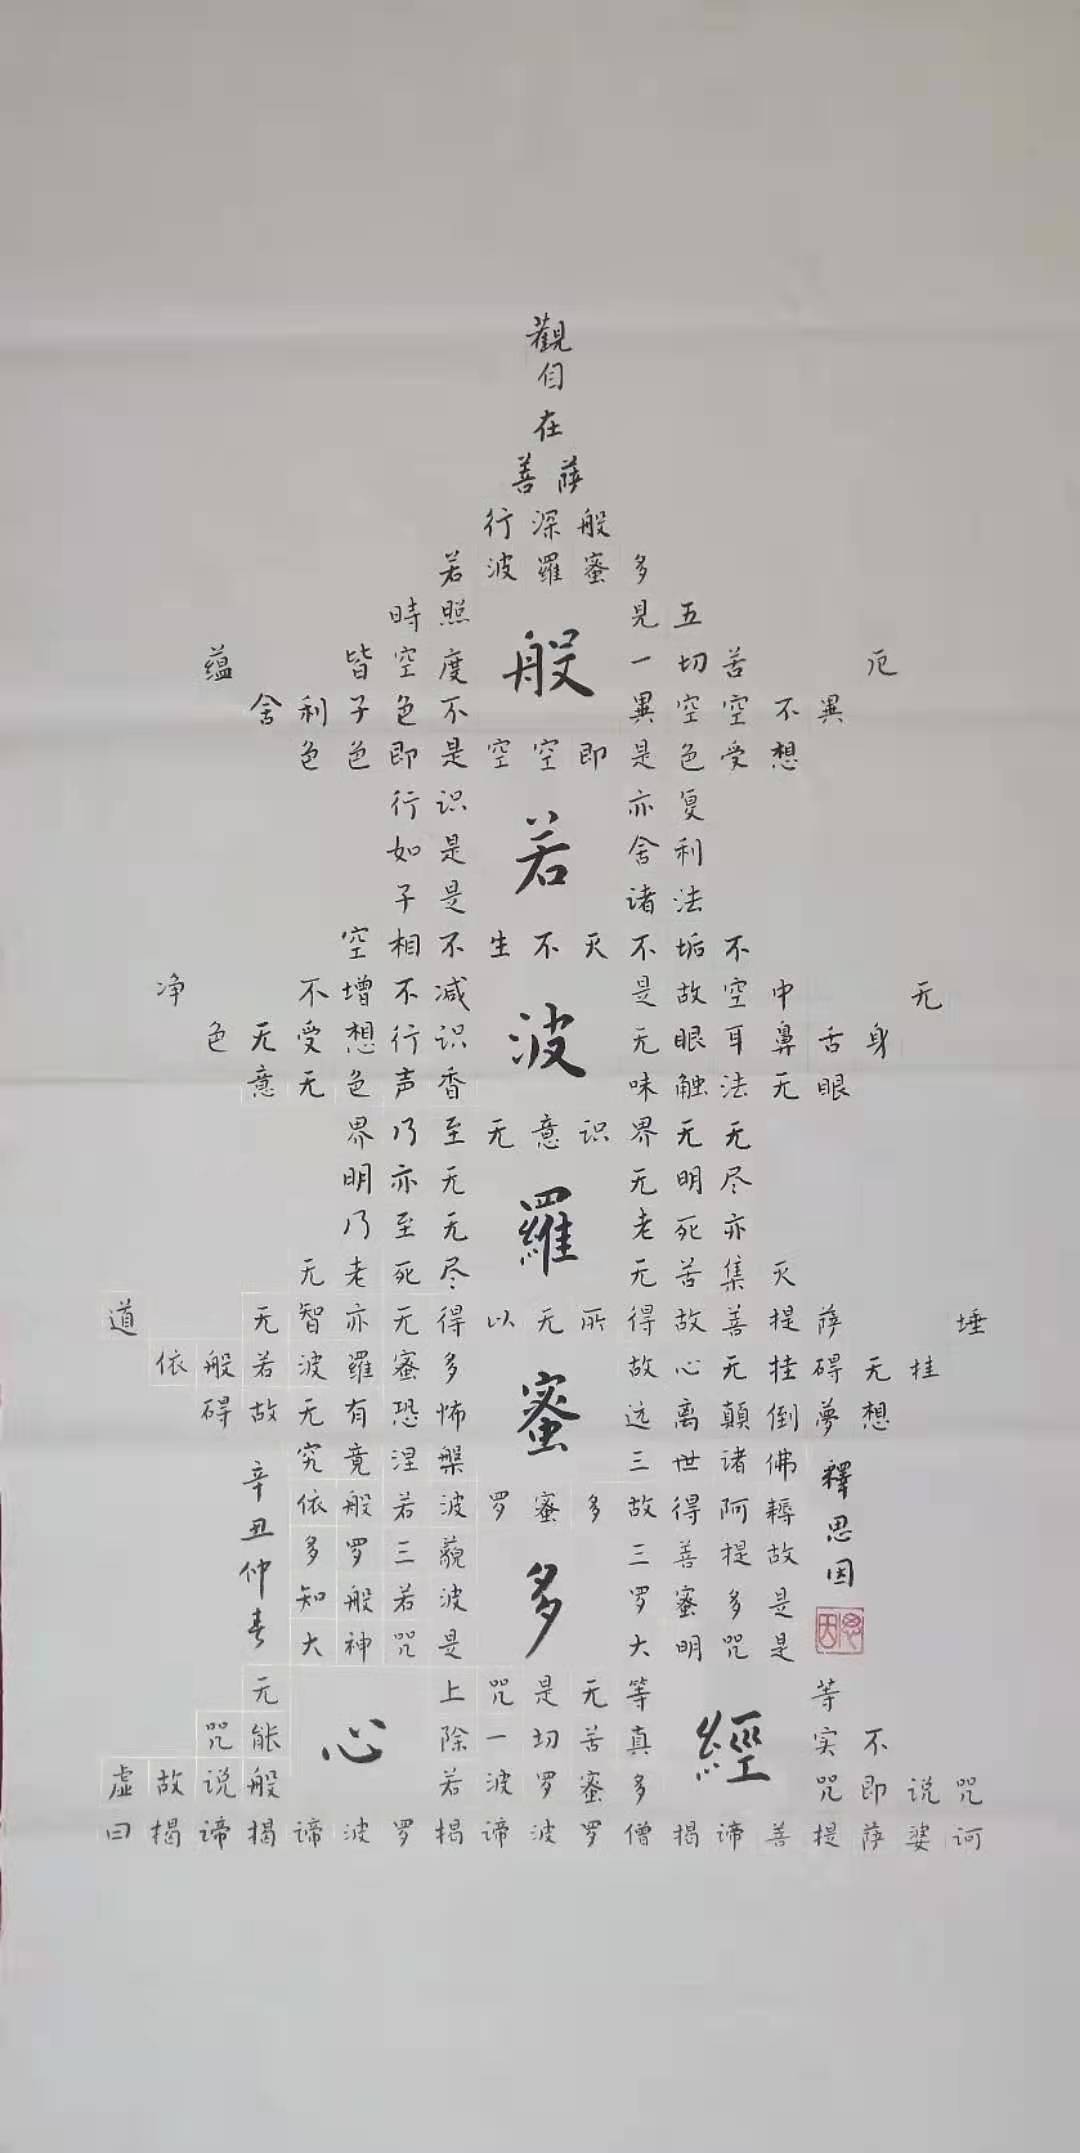 觀
自
在
菩薩
行深般
若波羅蜜多
時照見五
蕴皆空度一切苦厄
舍利子色不異空空不異
色色即是空空即是色受想
行识亦复
如是舍利
子是诸法
空相不生不灭不垢不
净不增不减是故空中无
色无受想行识无眼耳鼻舌身
意无色声香味触法无眼
界乃至无意识界无无
明亦无无明尽
乃至无老死亦
无老死尽无苦集灭
道无智亦无得以无所得故菩提萨埵
依般若波羅蜜多故心无挂碍无挂
碍故无有恐怖远离顛倒夢想
究竟涅槃三世诸佛
依般若波罗蜜多故得阿耨
多罗三藐三菩提故
知般若波罗蜜多是
大神咒是大明咒是
无上咒是无等等
咒能除一切苦真实不
虚故说般若波罗蜜多咒即说咒
曰揭谛揭谛波罗揭谛波罗僧揭谛菩提萨婆诃
般若波羅蜜多
心經
辛丑仲春
釋思因
思因